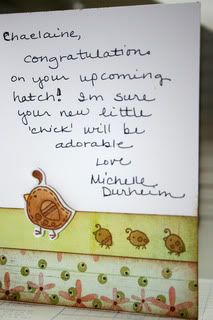 Chaelaine,
Congratulations
on your upcoming
hatch! I'm sure
your new little
"chick" will be
adorable
Love
Michelle
Durheim